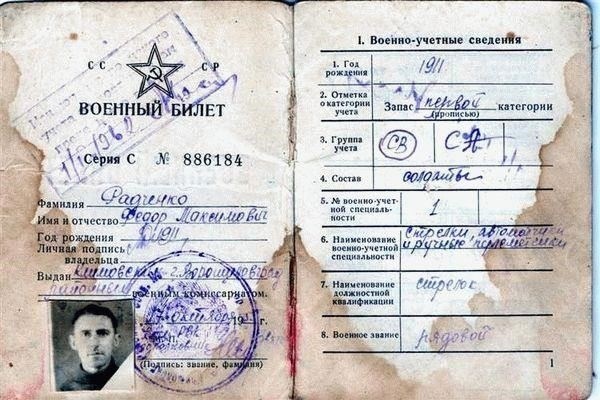 СС СР
ВОЕННЫЙ БИЛЕТ
1/IV 1962
Серия С № 886184
Фамилия Радченко
Имя и отчество Федор Максимович
Год рождения 1911
Личная подпись
владельца
Выдан г. Ворошиловград
районным военным комиссариатом.
октября 195 г.
(Подпись: звание, фамилия)
I. Военно-учетные сведения
1. Год рождения 1911
2. Отметка о категории учета Запас первой категории
(прописью)
3. Группа учета СВ СА
4. Состав солдаты
5. № военно-учетной специальности 1
6. Наименование военно-учетной специальности стрелки, автоматчики и ручные пулеметчики
7. Наименование должностной квалификации стрелок
8. Военное звание рядовой
1